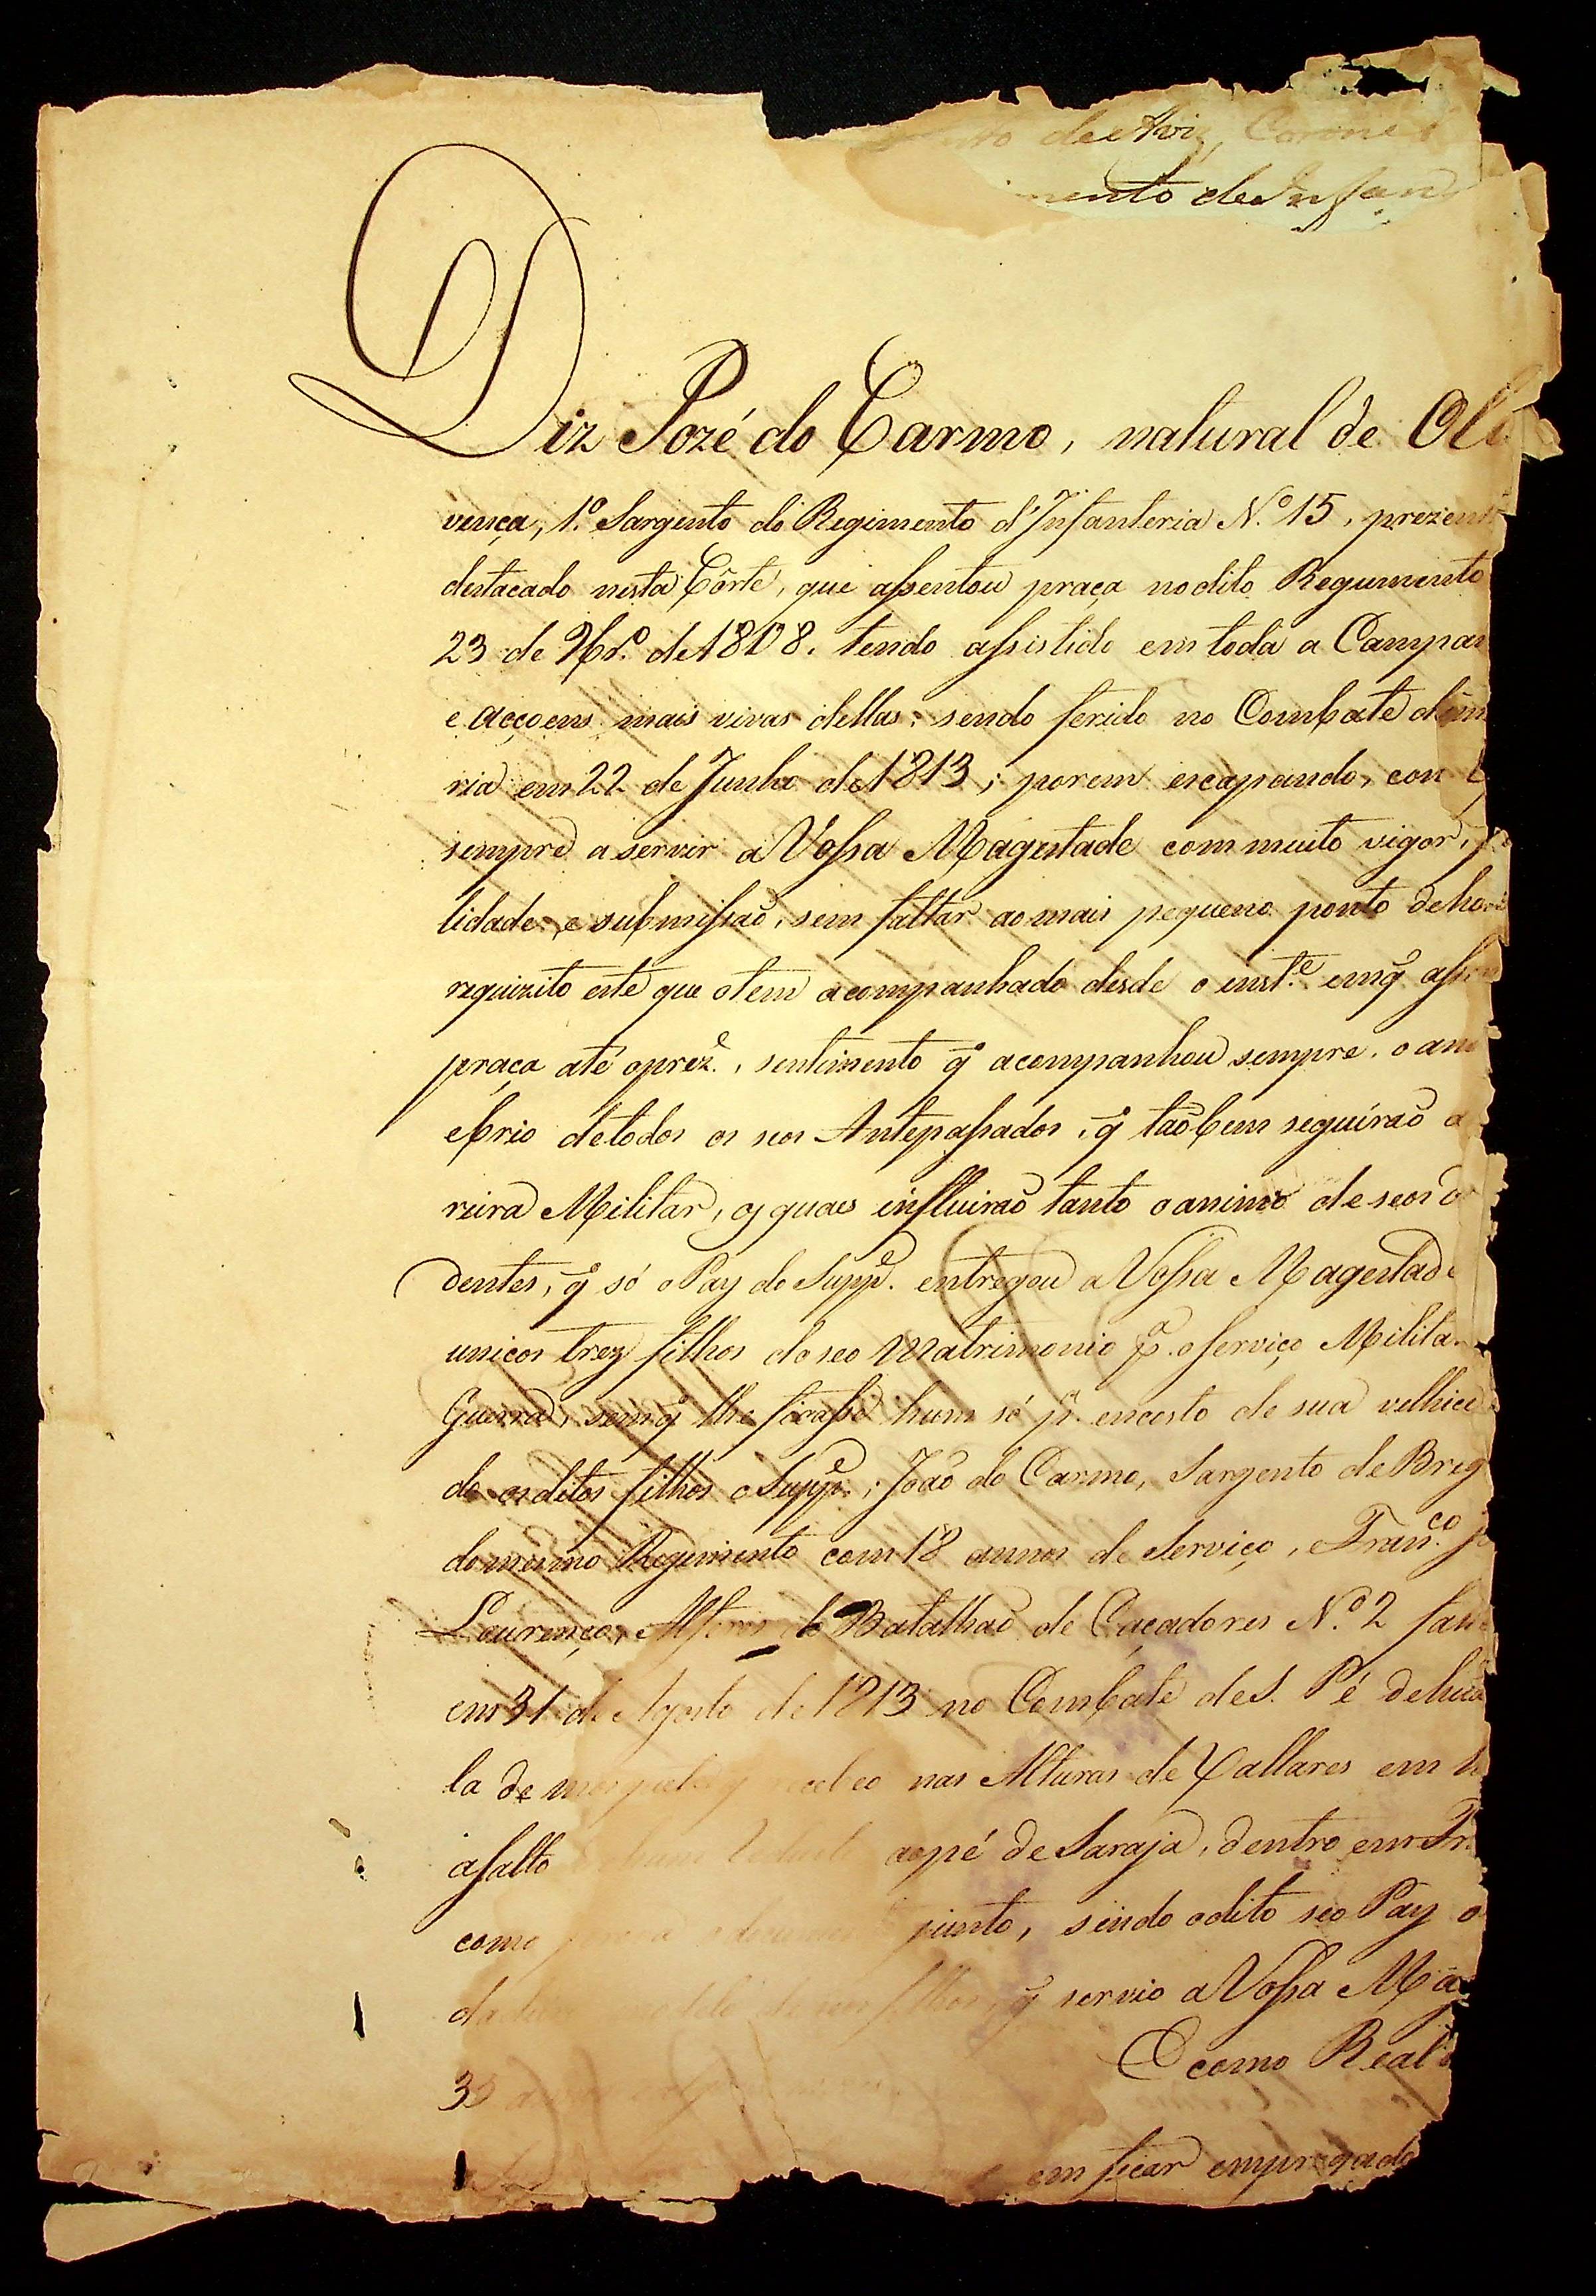 de Aviz, Corone
mento de Infan
Diz Jozé do Carmo, natural de Oli
vença, 1.º Sargento do Regimento d'Infanteria N.º 15, prezent
destacado nesta Côrte, que assentou praça no dito Regimento
23 de 9br.º de 1808. tendo assistido em toda a Campan
e acçoens mais vivas dellas: sendo ferido no Combate
ria em 22 de Junho de 1813; porem escapando, con
sempre a servir a Vossa Magestade com muito vigor,
lidade, e submissaõ, sem faltar ao mais pequeno ponto de hon
requizito este que o tem acompanhado desde o inst.e em q̃ assen
praça até o prez.e, sentimento q̃ acompanhou sempre, o ani
e brio de todos os seos Antepassados, q̃ taõbem seguíraõ a
reira Militar, os quaes influiraõ tanto o animo de seos
dentes, q̃ só o Pay do Supp.e entregou a Vossa Magestade
unicos trez filhos do seo Matrimonio p.a o serviço Milita
Guerra, sem q̃ lhe ficasse hum só p.a encosto de sua velhice
do os ditos filhos o Supp.e; Joaõ do Carmo, Sargento de Brig
do mesmo Regimento com 18 annos de Serviço, e Fran.co
Lourenço, Alferes do Batalhaõ de Caçadores N.º 2
em 31 de Agosto de 1813 no Combate de S. Pé de huã
la de nas Alturas de Vallares em
assalto ao pé de Saraja, dentro em Fr
como junto, sendo o dito seo Pay
filhos, q̃ servio a Vossa Ma
E como Real
em ficar empregado